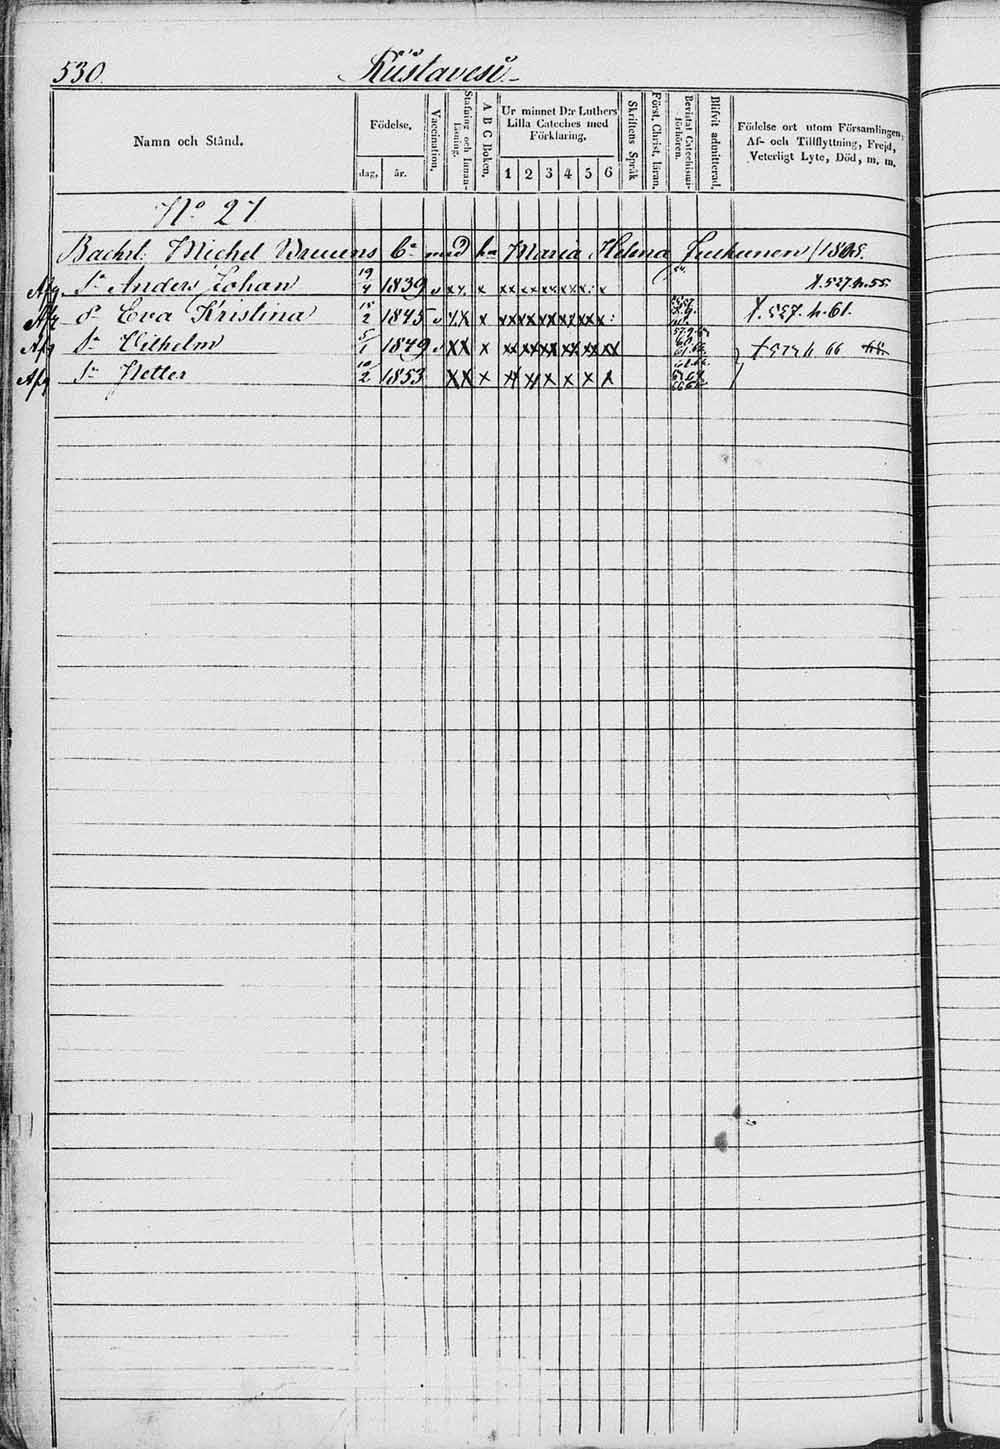 530. Kustavesi
Namn och Stånd.
Födelse,
dag, år.
Vaccination,
Stafning och Innanläsning.
A B C Boken,
Ur minnet D:r Luthers Lilla Cateches med Förklaring,
1 2 3 4 5 6
Skriftens Språk
Först. Christ. läran,
Bevistat Catechismiförhören.
Blifvit admitterad,
Födelse ort utom Församlingen, Af- och Tillflyttning, Frejd, Veterligt Lyte, Död, m. m.
No 27
Backst. Michel med Maria Helena
Afg Sn Anders Johan 19/4 1839 v x x x xx xx xx xx x x 527. h. 55
Afg dr Eva Kristina 18/2 1845 v x x x xx xx xx xx xx x 557. h. 61.
Afg Sn Wilhelm 5/1 1849 v x x x xx xx xx xx xx xx h 66
Afg Sn Petter 10/2 1853 x x x x x x x x x